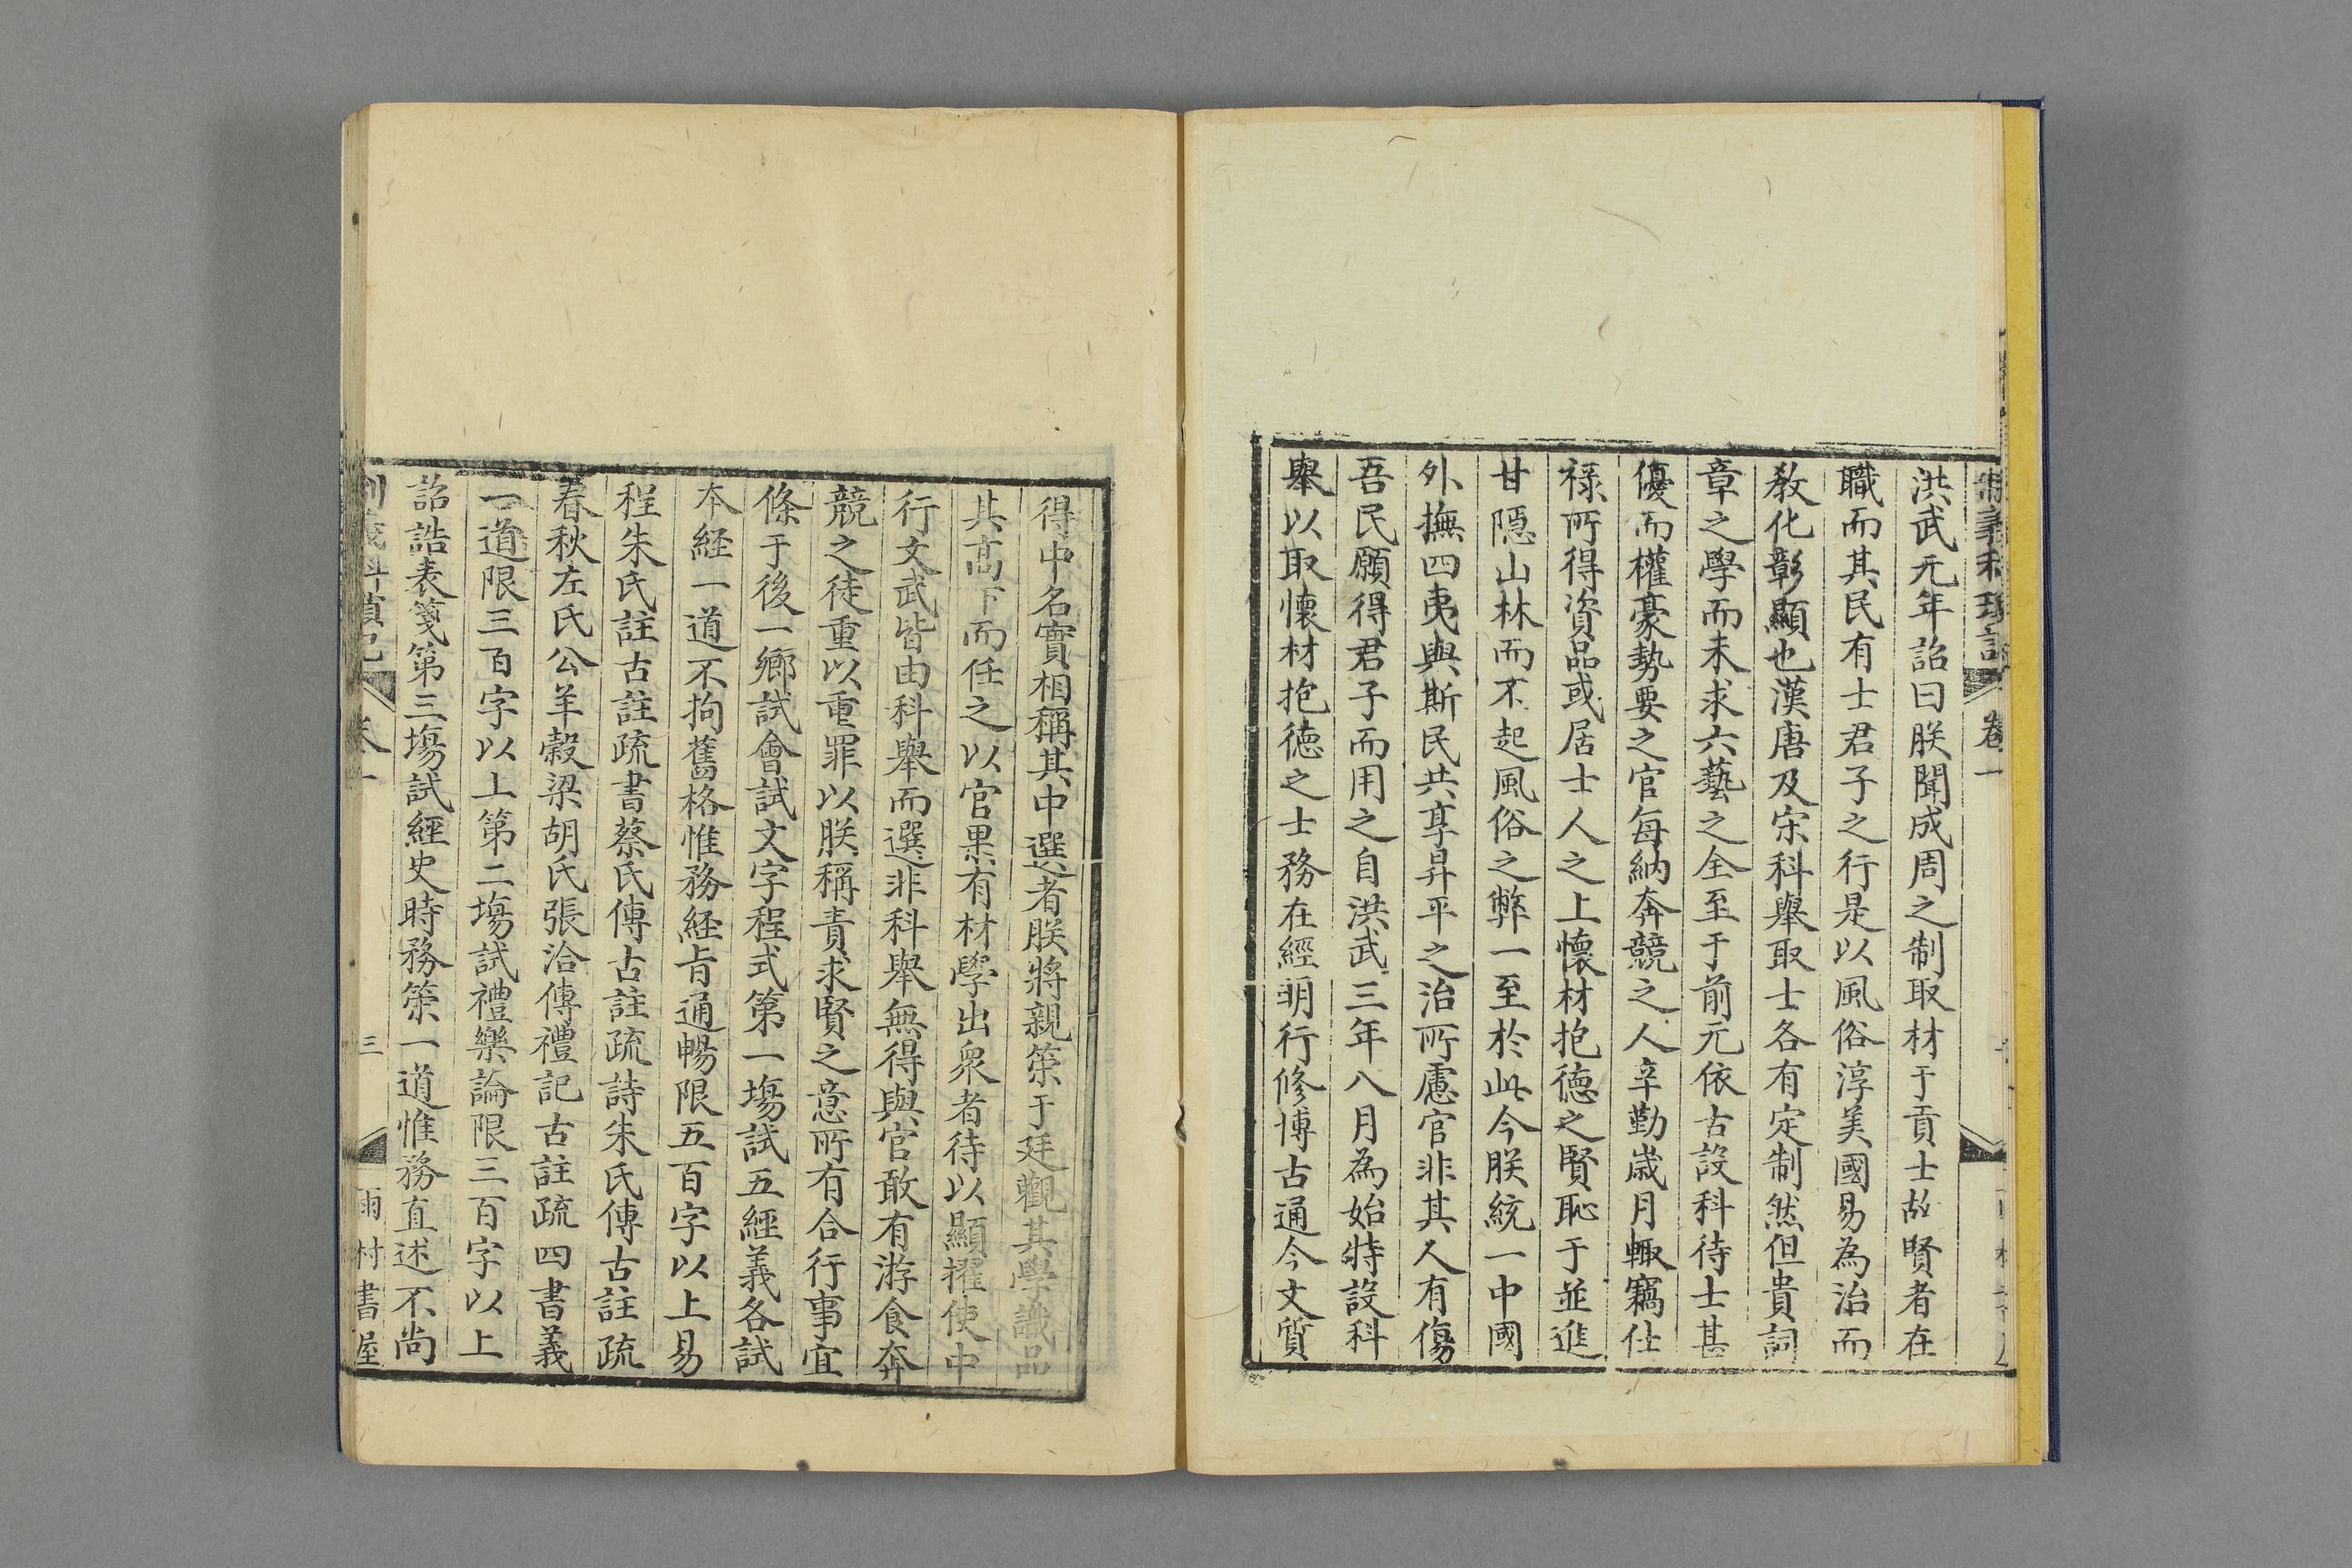 制義科瑣記 卷一
洪武元年詔曰朕聞成周之制取材于貢士故賢者在
職而其民有士君子之行是以風俗淳美國易為治而
教化彰顯也漢唐及宋科舉取士各有定制然但貴詞
章之學而未求六藝之全至于前元依古設科待士甚
優而權豪勢要之官每納奔競之人辛勤歲月輙竊仕
祿所得資品或居士人之上懷材抱德之賢恥于並進
甘隱山林而不起風俗之弊一至於此今朕統一中國
外撫四夷與斯民共享昇平之治所慮官非其人有傷
吾民願得君子而用之自洪武三年八月為始特設科
舉以取懷材抱德之士務在經明行修博古通今文質
得中名實相稱其中選者朕將親策于廷觀其學識品
其高下而任之以官果有材學出眾者待以顯擢使中
行文武皆由科舉而選非科舉無得與官敢有游食奔
競之徒重以重罪以朕稱責求賢之意所有合行事宜
條于後一鄉試會試文字程式第一塲試五經義各試
本経一道不拘舊格惟務経旨通暢限五百字以上易
程朱氏註古註疏書蔡氏傳古註疏詩朱氏傳古註疏
春秋左氏公羊穀梁胡氏張洽傳禮記古註疏四書義
一道限三百字以上第二塲試禮樂論限三百字以上
詔誥表箋第三塲試經史時務策一道惟務直述不尚
制義科瑣記 卷一 三 雨村書屋